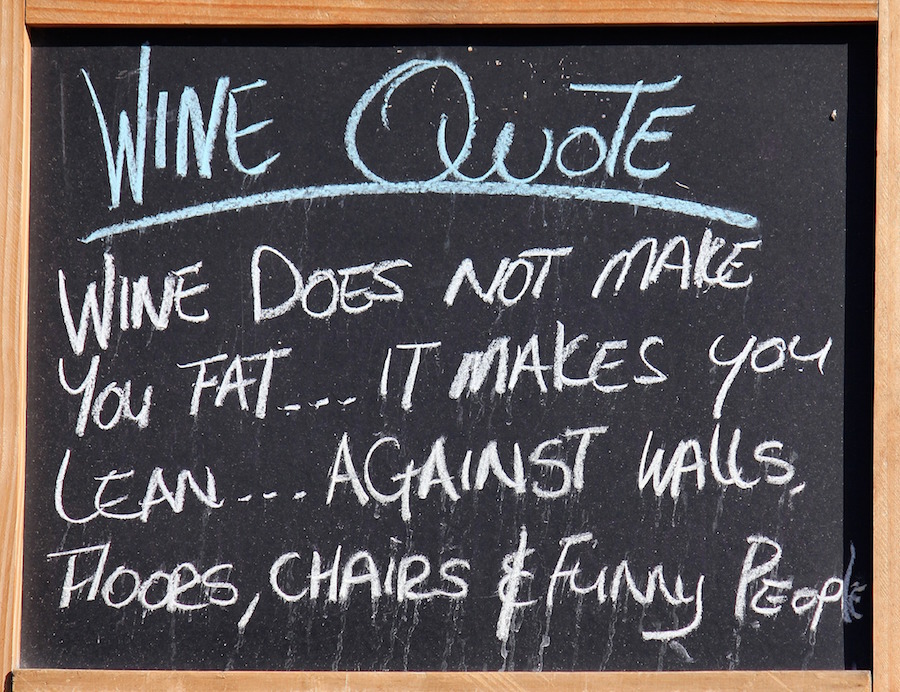 WINE QUOTE
WINE DOES NOT MAKE
YOU FAT... IT MAKES YOU
LEAN... AGAINST WALLS,
FLOORS, CHAIRS & FUNNY PEOPLE